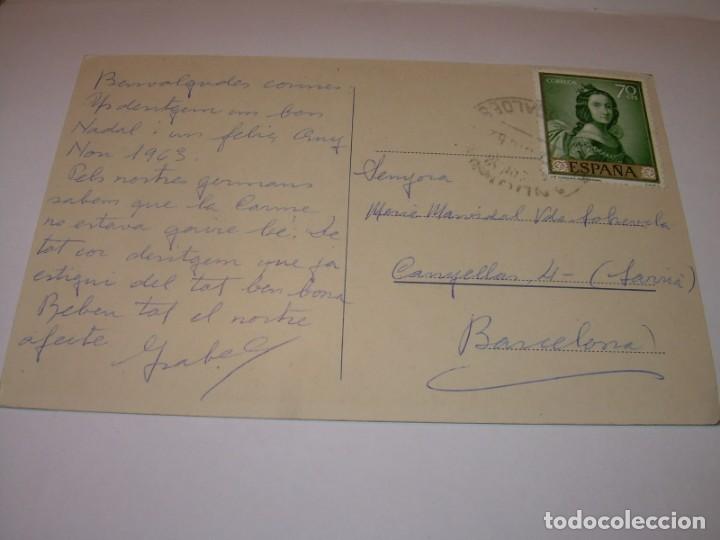 Benvolgudes cosines
Us desitgem un bon
Nadal i un feliç Any
Nou 1963.
Pels nostres germans
sabem que la Carme
no estava gaire bé. De
tot cor desitgem que ja
estigui del tot ben bona
Reben tot el nostre
afecte Isabel
CORREOS
70
CTS
ESPAÑA
Senyora
Maria Vda
Canyellas, 4 - (Sarrià)
Barcelona
todocoleccion